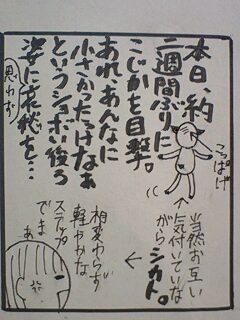 本日、約
二週間ぶりに
こじかを目撃。
あれ、あんなに
小さかったっけなぁ
というショボい後ろ
姿に哀愁を…
思わず
こっぱげ
↑
当然お互い
気付いていな
がら
シカト。
←
相変わらず
軽やかな
ステップ
でまぁ